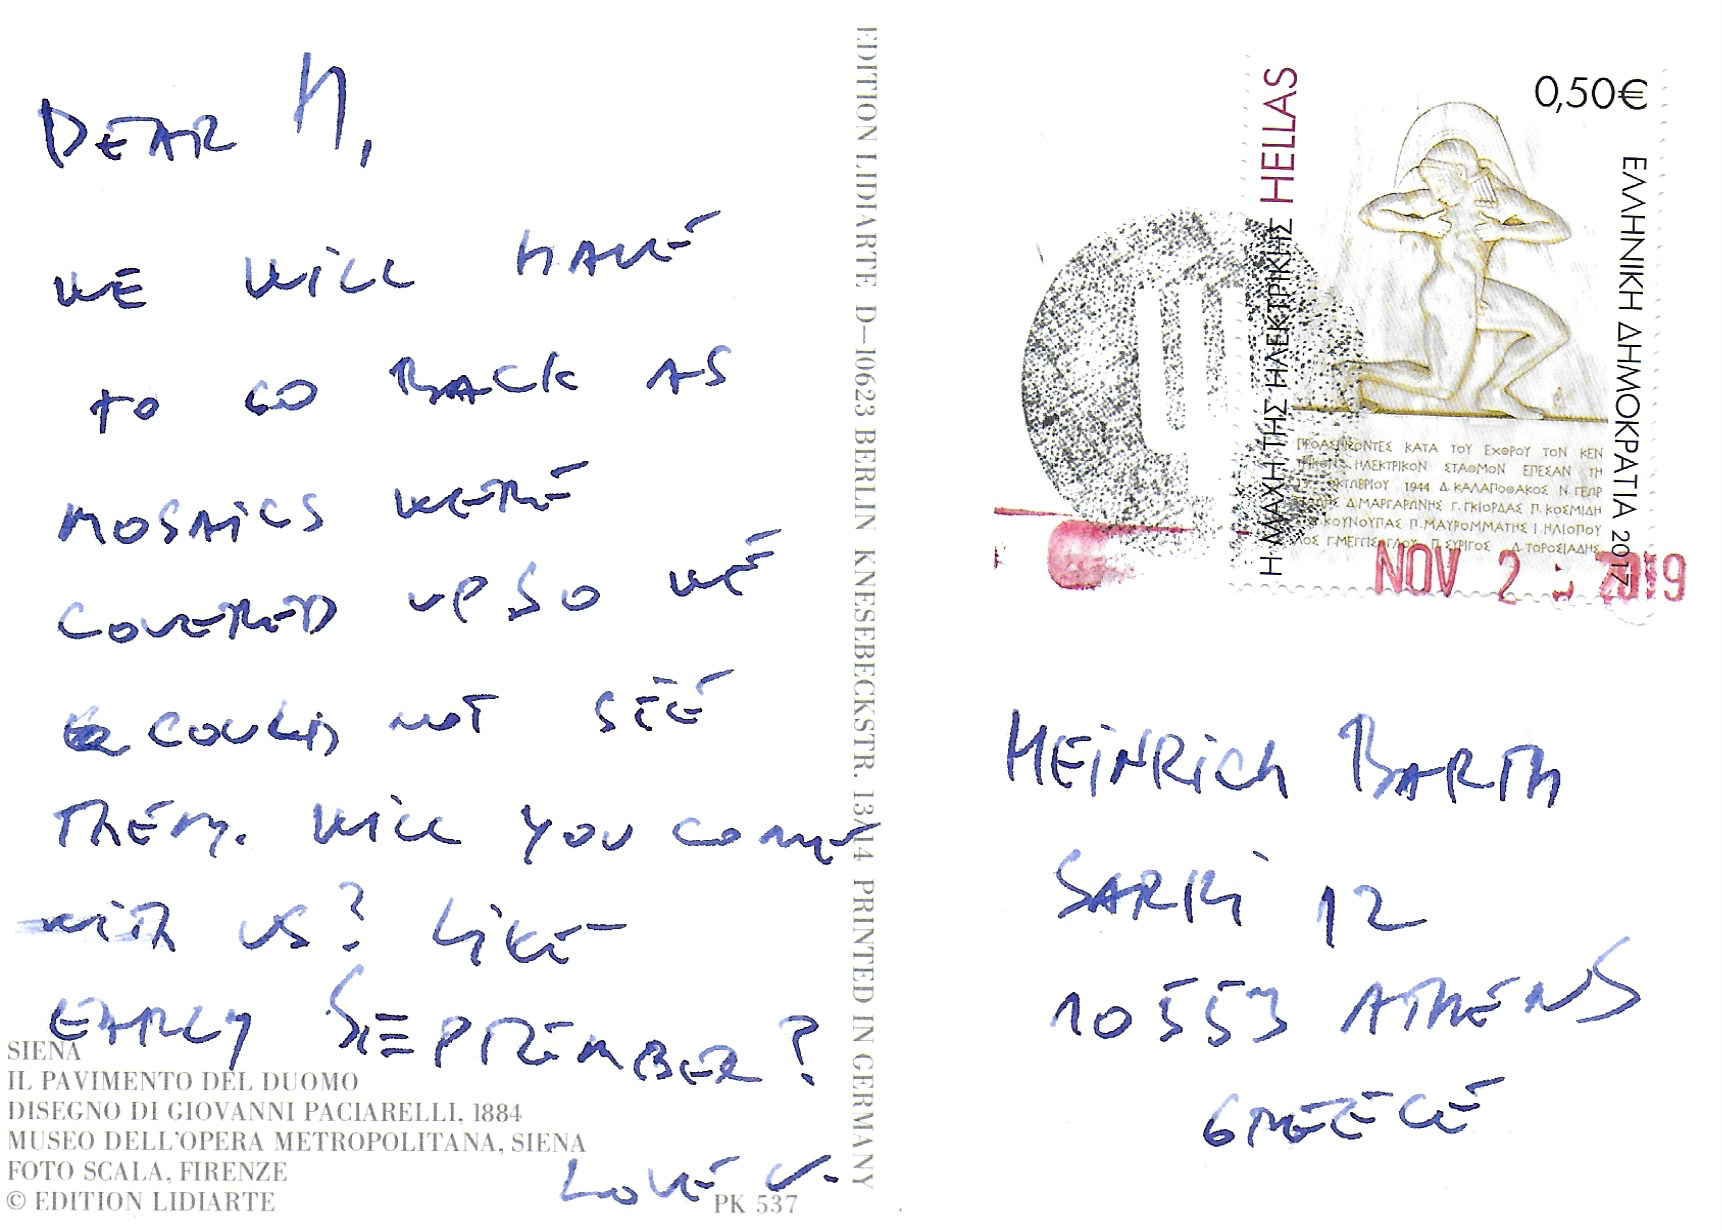 DEAR H,
WE WILL HAVE
TO GO BACK AS
MOSAICS WERE
COVERED UP SO WE
COULD NOT SEE
THEM. WILL YOU COME
WITH US? LIKE
EARLY SEPTEMBER?
LOVE V.
SIENA
IL PAVIMENTO DEL DUOMO
DISEGNO DI GIOVANNI PACIARELLI, 1884
MUSEO DELL'OPERA METROPOLITANA, SIENA
FOTO SCALA, FIRENZE
© EDITION LIDIARTE
PK 537
EDITION LIDIARTE D–10623 BERLIN KNESEBECKSTR. 13/14 PRINTED IN GERMANY
Η ΜΑΧΗ ΤΗΣ ΗΛΕΚΤΡΙΚΗΣ HELLAS
0,50€
ΕΛΛΗΝΙΚΗ ΔΗΜΟΚΡΑΤΙΑ 2017
ΚΑΤΑ ΤΟΥ ΕΧΘΡΟΥ ΤΟΝ ΚΕΝ
ΗΛΕΚΤΡΙΚΟΝ ΣΤΑΘΜΟΝ ΕΠΕΣΑΝ ΤΗ
1944 Δ.ΚΑΛΑΠΟΘΑΚΟΣ Ν.ΓΕΩΡ
Δ.ΜΑΡΓΑΡΩΝΗΣ Γ.ΓΚΙΟΡΔΑΣ Π.ΚΟΣΜΙΔΗ
ΚΟΥΝΟΥΠΑΣ Π.ΜΑΥΡΟΜΜΑΤΗΣ Ι.ΗΛΙΟΠΟΥ
Π.ΣΥΡΙΓΟΣ Δ.ΤΟΡΟΣΙΑΔΗΣ
NOV 2 2019
HEINRICH BARTH
SARRI 12
10553 ATHENS
GREECE